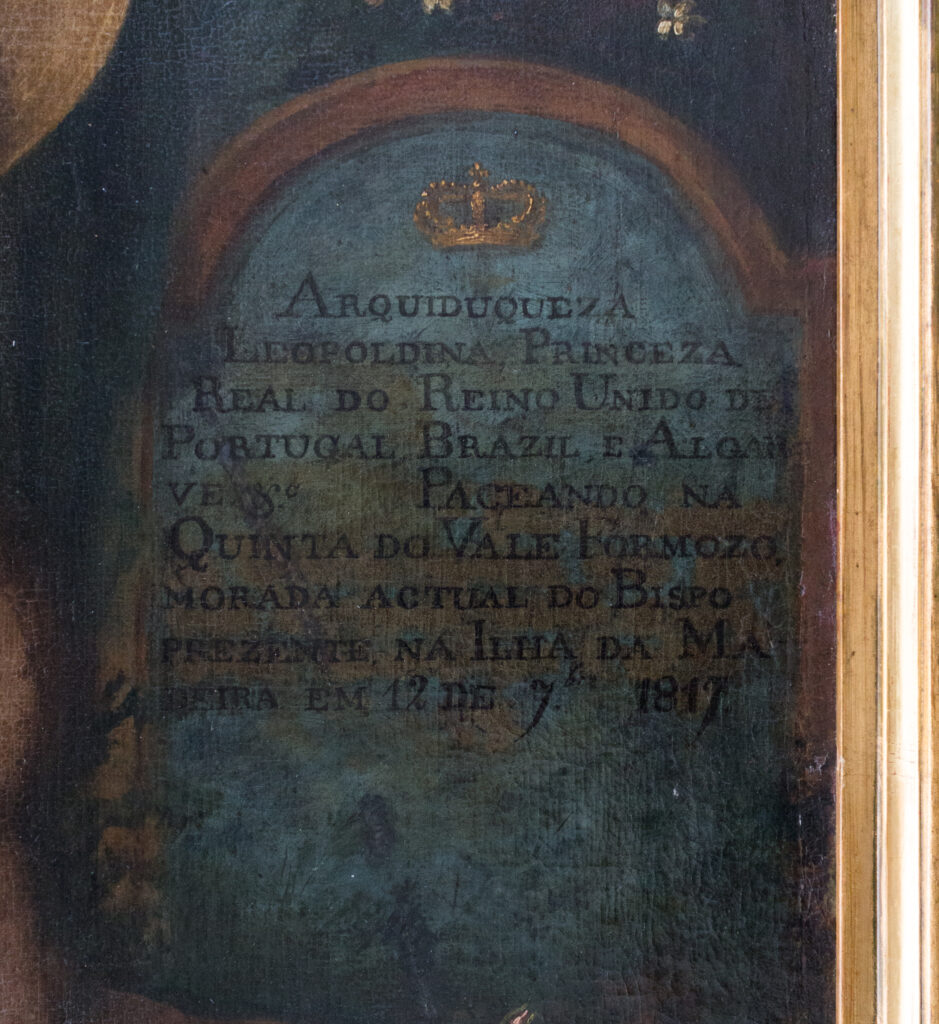 ARQUIDUQUEZA
LEOPOLDINA, PRINCEZA
REAL DO REINO UNIDO DE
PORTUGAL, BRAZIL, E ALGAR
VE &c.ª PACEANDO NA
QUINTA DO VALE FORMOZO,
MORADA ACTUAL DO BISPO
PREZENTE, NA ILHA DA MA
DEIRA EM 12 DE 7.br 1817.